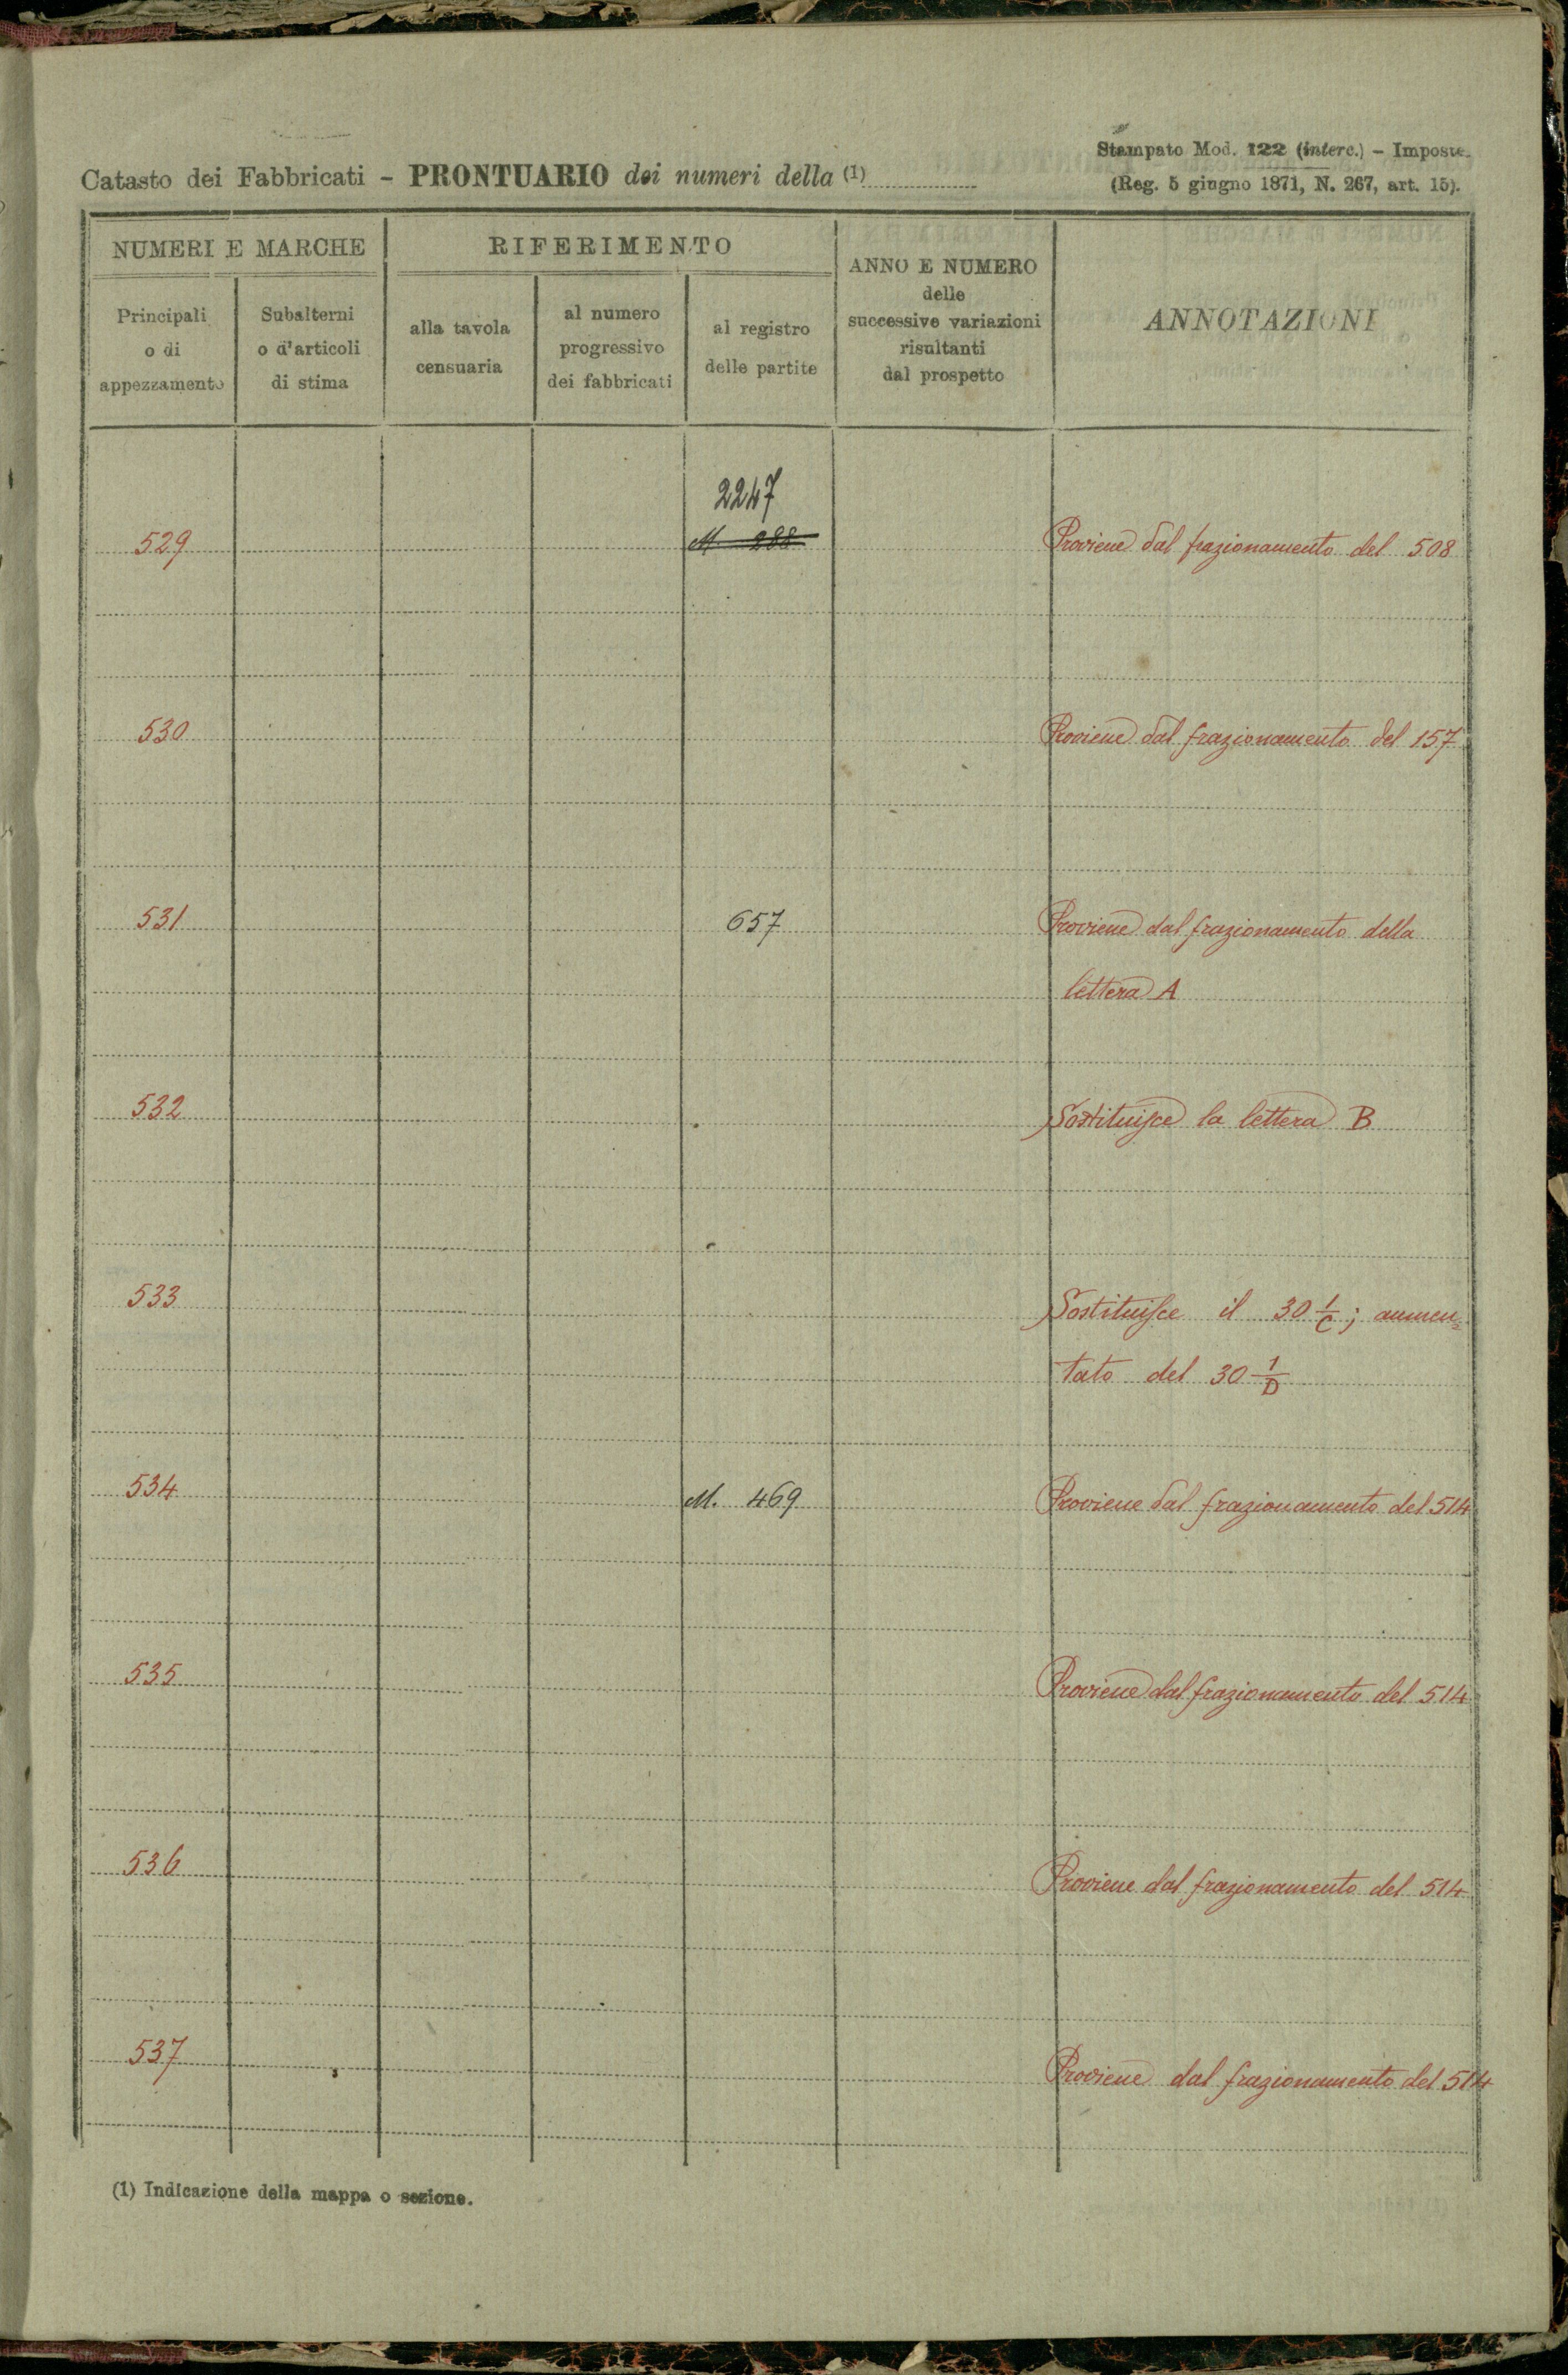 Stampato Mod. 122 (interc.) - Imposte.
Catasto dei Fabbricati - PRONTUARIO dei numeri della (1)
(Reg. 5 giugno 1871, N. 267, art. 15).
NUMERI E MARCHE
RIFERIMENTO
ANNO E NUMERO
delle
successive variazioni
risultanti
dal prospetto
ANNOTAZIONI
Principali
o di
appezzamento
Subalterni
o d'articoli
di stima
alla tavola
censuaria
al numero
progressivo
dei fabbricati
al registro
delle partite
2247
529 M. 288 Proviene dal frazionamento del 508
530 Proviene dal frazionamento del 157
531 657 Proviene dal frazionamento della
lettera A
532 Sostituisce la lettera B
533 Sostituisce il 30 1/C; aumen=
tato del 30 1/D
534 M. 469 Proviene dal frazionamento del 514
535 Proviene dal frazionamento del 514
536 Proviene dal frazionamento del 514
537 Proviene dal frazionamento del 514
(1) Indicazione della mappa o sezione.